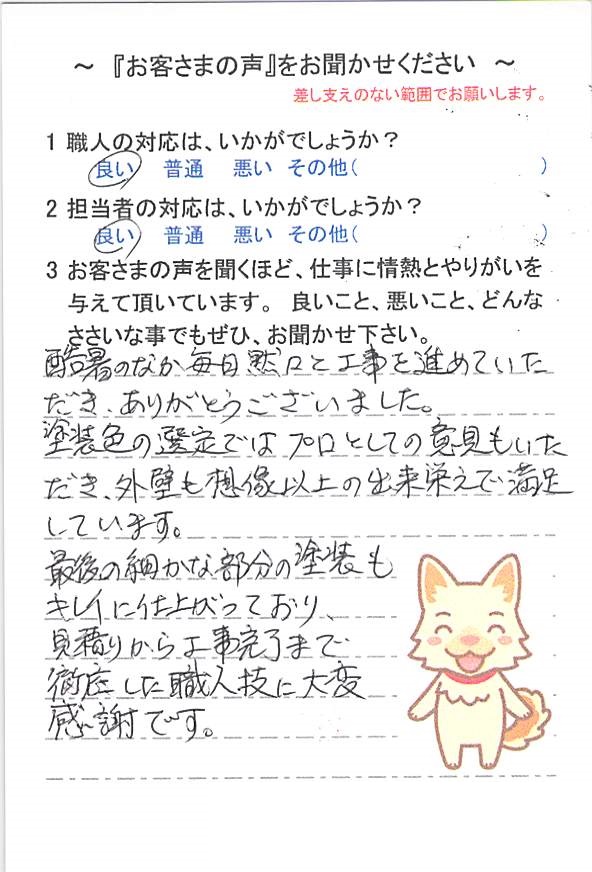 ～ 『お客さまの声』をお聞かせください ～
差し支えのない範囲でお願いします。
1 職人の対応は、いかがでしょうか？
良い 普通 悪い その他( )
2 担当者の対応は、いかがでしょうか？
良い 普通 悪い その他( )
3 お客さまの声を聞くほど、仕事に情熱とやりがいを
与えて頂いています。 良いこと、悪いこと、どんな
ささいな事でもぜひ、お聞かせ下さい。
酷暑のなか毎日黙々と工事を進めていた
だき、ありがとうございました。
塗装色の選定ではプロとしての意見もいた
だき、外壁も想像以上の出来栄えで満足
しています。
最後の細かな部分の塗装も
キレイに仕上がっており、
見積りから工事完了まで
徹底した職人技に大変
感謝です。